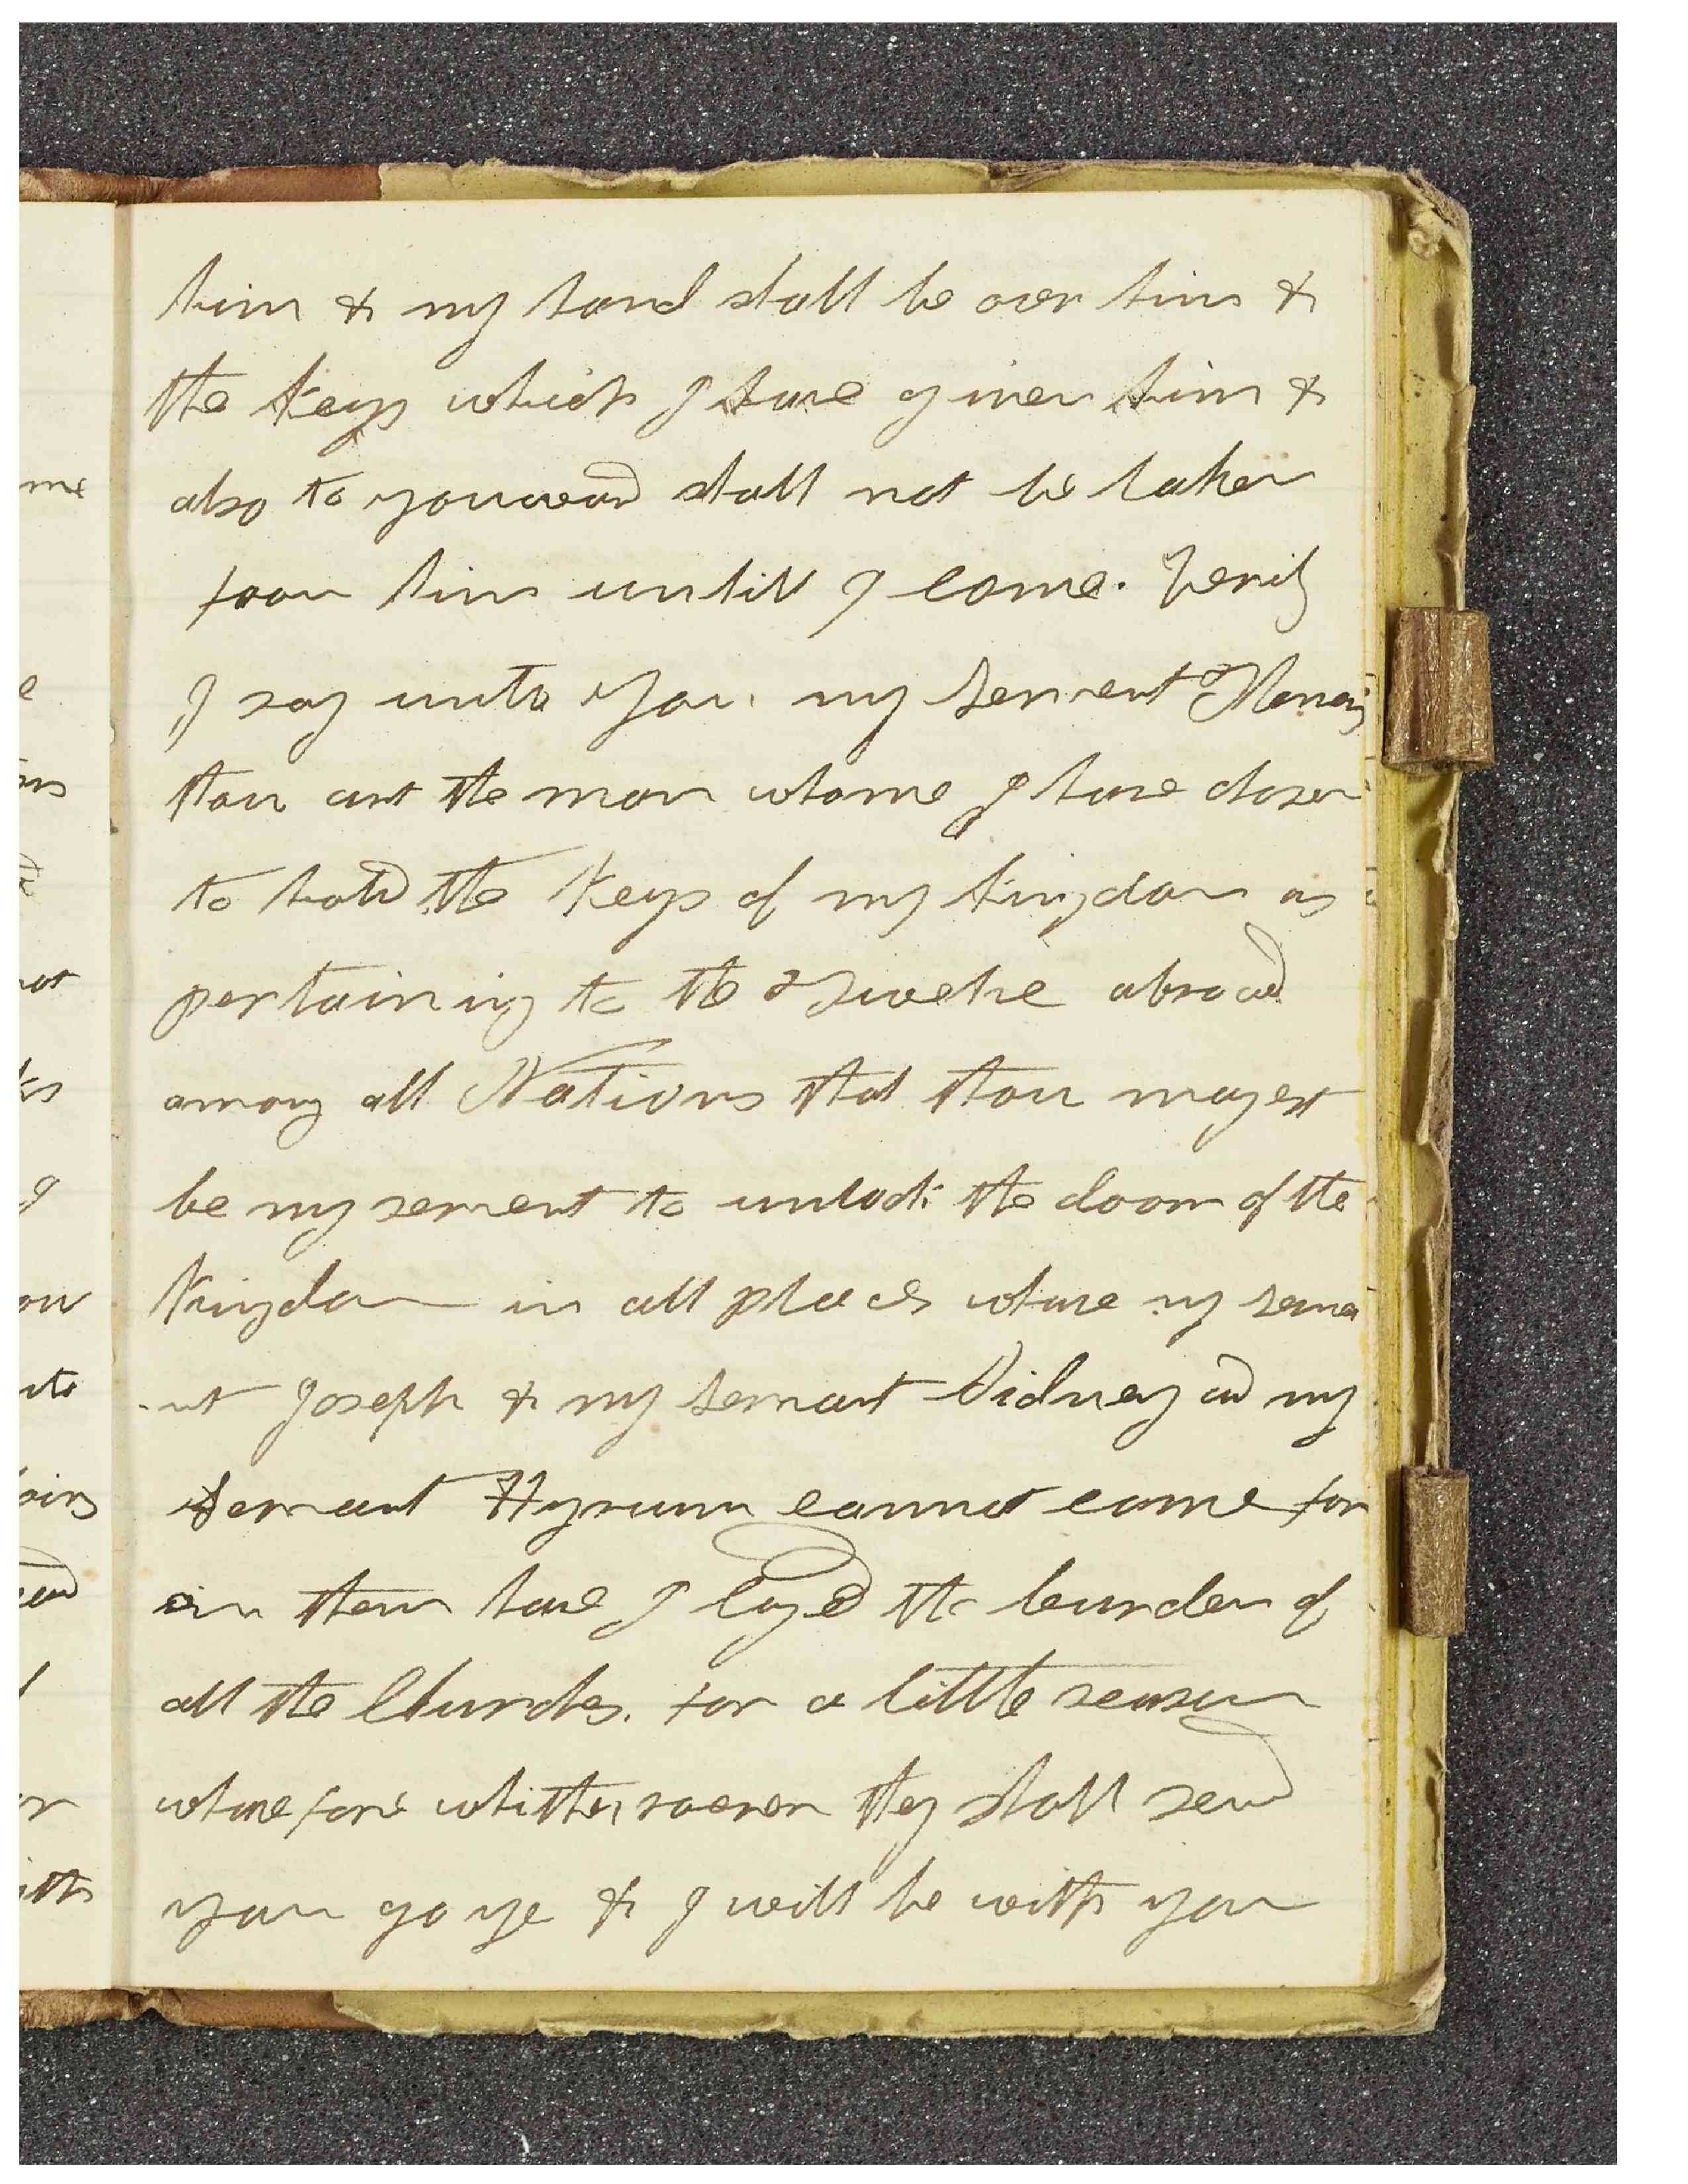 him & my hand shall be over him &
the Keys which I have given him &
also to youward shall not be taken
from him untill I come. Verily
I say unto you. my Servent Thomas
thou art the man whome I have chosen
to hold the Keys of my kingdom as
pertaining to the Twelve abroad
among all Nations that thou mayest
be my servent to unlock the door of the
Kingdom in all places whare my serva
-nt Joseph & my Servant Sidney and my
Servant Hyrum cannot come for
on them have I layed the burden of
all the Churches. for a little season
wharefore whithersoever they shall send
you go ye & I will be with you
me
e
not
g
ith